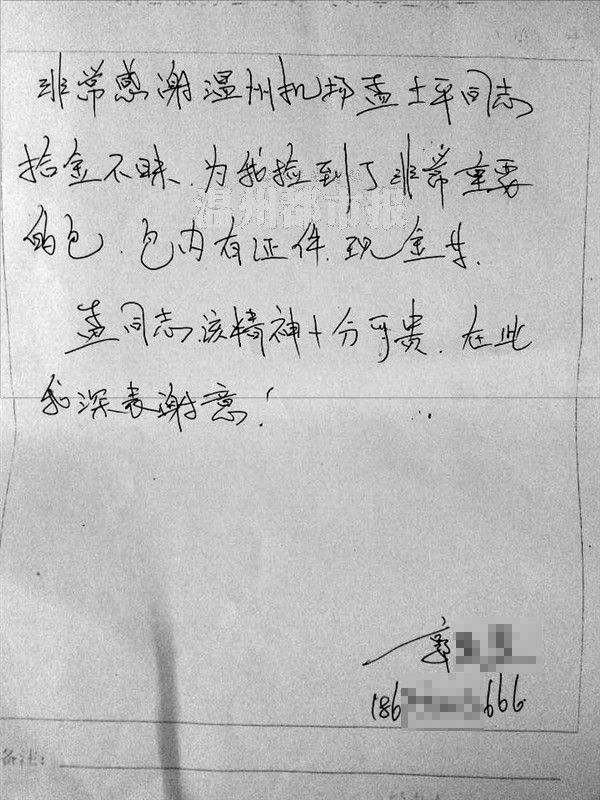 非常感谢温州机场孟士平同志
拾金不昧、为我捡到了非常重要
温州都市报
的包.包内有证件.现金等.
孟同志该精神十分可贵.在此
我深表谢意!
186 666.
备注: